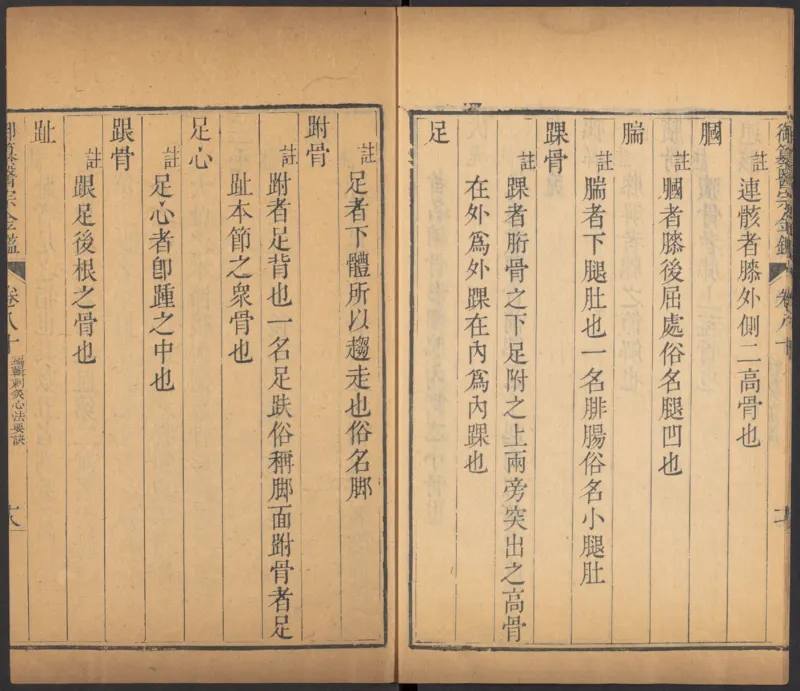 註連骸者膝外側二高骨也
膕
註膕者膝後屈處俗名腿凹也
腨
註腨者下腿肚也一名腓腸俗名小腿肚
踝骨
註踝者胻骨之下足附之上兩旁突出之高骨
在外爲外踝在內爲內踝也
足
註足者下體所以趨走也俗名脚
跗骨
註跗者足背也一名足趺俗稱脚面跗骨者足
趾本節之衆骨也
足心
註足心者卽踵之中也
跟骨
註跟足後根之骨也
趾
御纂醫宗金鑑
卷八十
編輯刺灸心法要訣